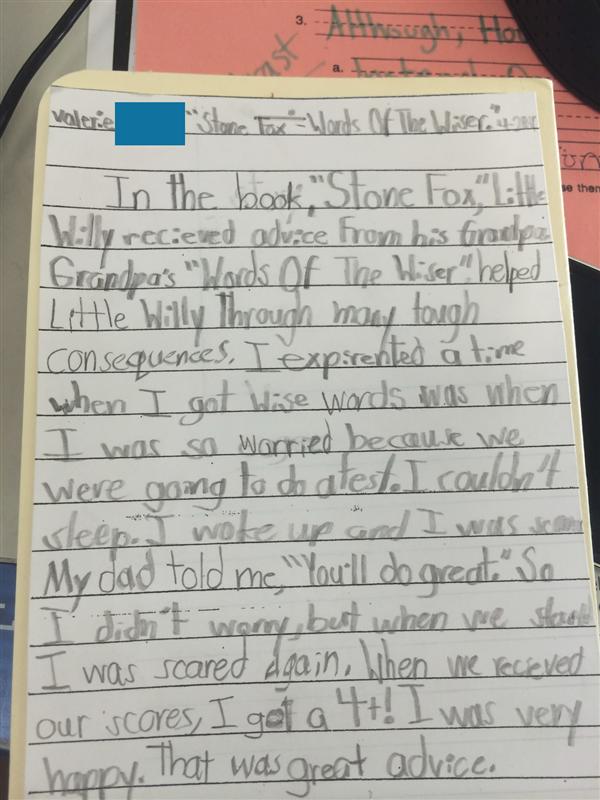 3. Although, Ho
a.
se then
Valerie "Stone Fox"-Words Of The Wiser."
In the book, "Stone Fox," Little
Willy recieved advice From his Grandpa
Grandpa's "Words Of The Wiser" helped
Little Willy Through many tough
consequences. I expirented a time
when I got Wise Words was when
I was so worried because we
were going to do a test. I couldn't
sleep. I woke up and I was
My dad told me, "You'll do great." So
I didn't worry, but when we
I was scared again. When we recieved
our scores, I got a 4+! I was very
happy. That was great advice.